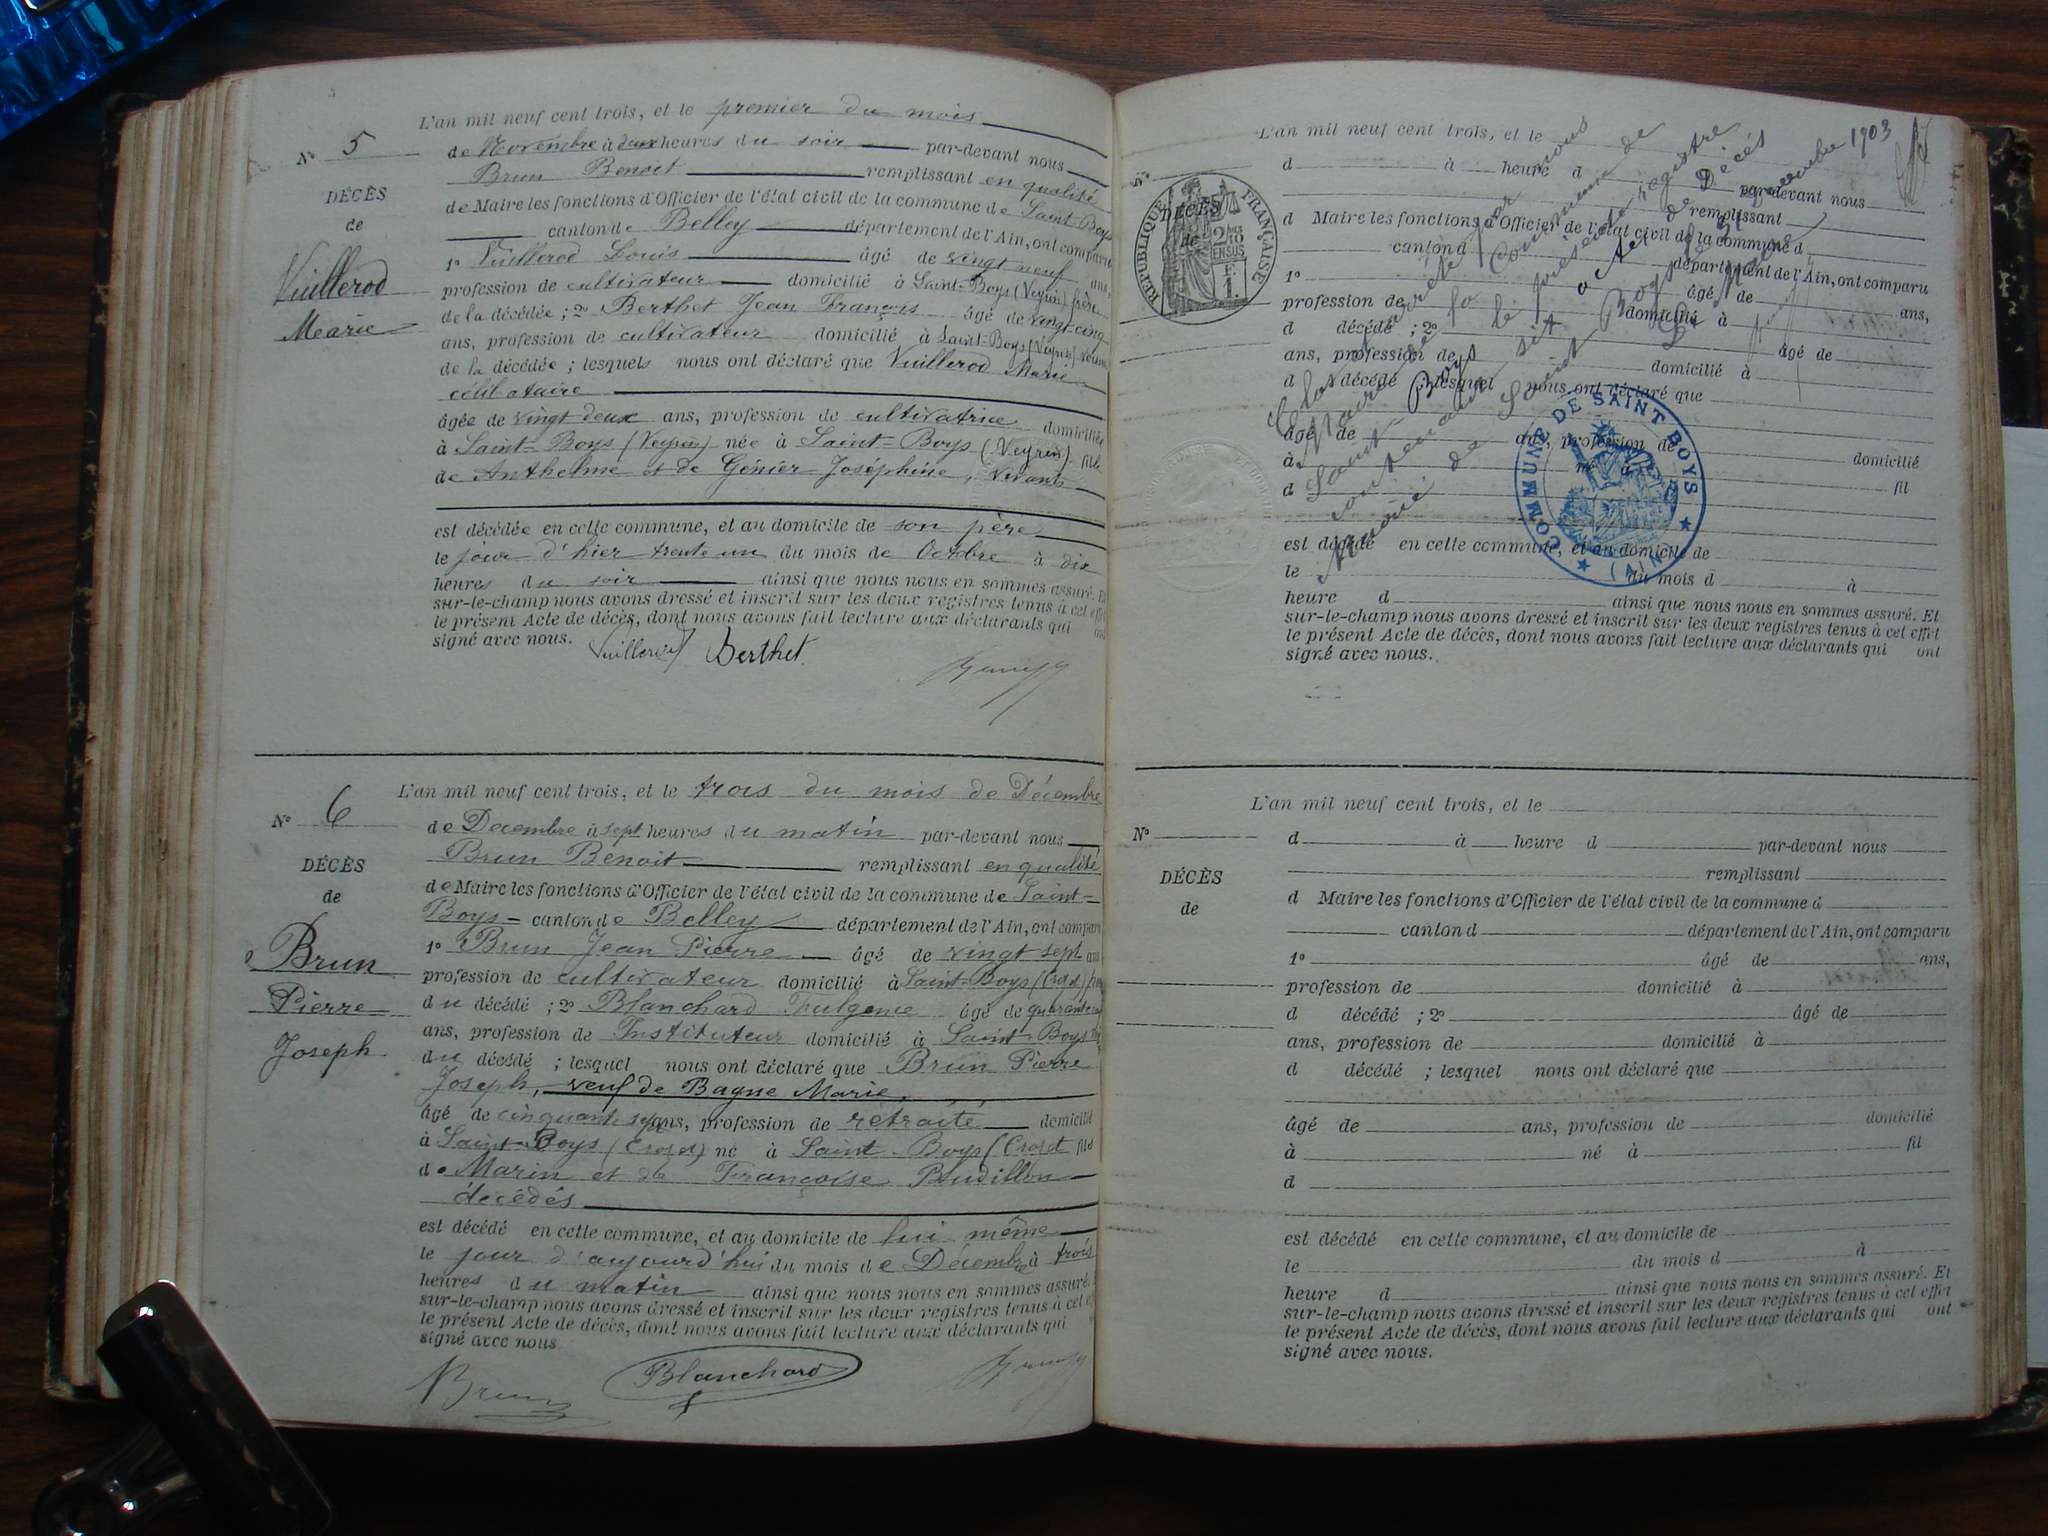 L'an mil neuf cent trois, et le premier du mois
N° 5
de Novembre à deux heures du soir par-devant nous
Brun Benoit remplissant en qualité
DÉCÈS
de Maire les fonctions d'Officier de l'état civil de la commune de Saint-Boys
de
canton de Belley département de l'Ain, ont comparu
Vuillerod
1° Vuillerod Louis âgé de vingt neuf ans,
profession de cultivateur domicilié à Saint-Boys (Veyrin) frère
Marie
de la décédée ; 2° Berthet Jean François âgé de vingt-cinq
ans, profession de cultivateur domicilié à Saint-Boys (Veyrin) voisin
de la décédée ; lesquels nous ont déclaré que Vuillerod Marie
célibataire
âgée de vingt deux ans, profession de cultivatrice domiciliée
à Saint-Boys (Veyrin) née à Saint-Boys (Veyrin) fille
de Anthelme et de Génier Joséphine, vivants
est décédée en cette commune, et au domicile de son père
le jour d'hier trente un du mois de Octobre à dix
heures du soir ainsi que nous nous en sommes assuré. Et
sur-le-champ nous avons dressé et inscrit sur les deux registres tenus à cet effet
le présent Acte de décès, dont nous avons fait lecture aux déclarants qui ont
signé avec nous.
Vuillerod Berthet
L'an mil neuf cent trois, et le trois du mois de Décembre
N° 6
de Decembre à sept heures du matin par-devant nous
Brun Benoit remplissant en qualité
DÉCÈS
de Maire les fonctions d'Officier de l'état civil de la commune de Saint-
de
Boys canton de Belley département de l'Ain, ont comparu
Brun
1° Brun Jean Pierre âgé de vingt sept ans
profession de cultivateur domicilié à Saint-Boys
Pierre
du décédé ; 2° Blanchard Fulgence âgé de
ans, profession de Instituteur domicilié à Saint-Boys
Joseph
du décédé ; lesquel nous ont déclaré que Brun Pierre
Joseph, veuf de Bagne Marie,
âgé de cinquant ans, profession de retraité domicilié
à Saint-Boys né à Saint-Boys fils
de Marin et de Françoise Budillon
décédés
est décédé en cette commune, et au domicile de lui même
le jour d'aujourd'hui du mois de Décembre à trois
heures du matin ainsi que nous nous en sommes assuré.
sur-le-champ nous avons dressé et inscrit sur les deux registres tenus à cet
le présent Acte de décès, dont nous avons fait lecture aux déclarants qui
signé avec nous
Brun Blanchard
L'an mil neuf cent trois, et le
N°
d à heure d par-devant nous
DÉCÈS
remplissant
de
d Maire les fonctions d'Officier de l'état civil de la commune d
RÉPUBLIQUE FRANÇAISE
canton d département de l'Ain, ont comparu
1° âgé de ans,
profession de domicilié à
d décédé ; 2° âgé de
ans, profession de domicilié à
d décédé ; lesquel nous ont déclaré que
âgé de ans, profession de domicilié
à né à
d fil
est décédé en cette commune, et au domicile de
le du mois d à
heure d ainsi que nous nous en sommes assuré. Et
sur-le-champ nous avons dressé et inscrit sur les deux registres tenus à cet effet
le présent Acte de décès, dont nous avons fait lecture aux déclarants qui ont
signé avec nous.
Clos et arrêté par nous
Maire de la Commune de
Saint Boys le présent registre
contenant six actes de Décès
Mairie de Saint Boys le 31 Décembre 1903
Le Maire
COMMUNE DE SAINT BOYS
(AIN)
L'an mil neuf cent trois, et le
N°
d à heure d par-devant nous
remplissant
DÉCÈS
de
d Maire les fonctions d'Officier de l'état civil de la commune d
canton d département de l'Ain, ont comparu
1° âgé de ans,
profession de domicilié à
d décédé ; 2° âgé de
ans, profession de domicilié à
d décédé ; lesquel nous ont déclaré que
âgé de ans, profession de domicilié
à né à fil
d
est décédé en cette commune, et au domicile de
le du mois d à
heure d ainsi que nous nous en sommes assuré. Et
sur-le-champ nous avons dressé et inscrit sur les deux registres tenus à cet effet
le présent Acte de décès, dont nous avons fait lecture aux déclarants qui ont
signé avec nous.